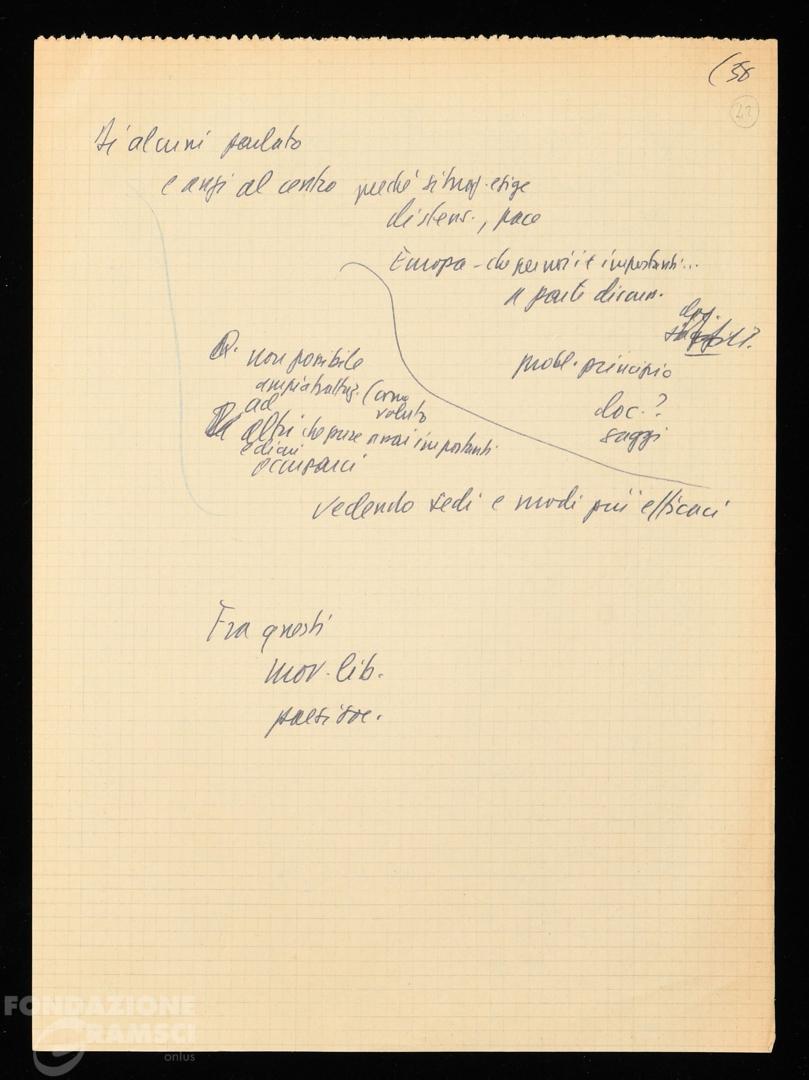 (38
42
Di alcuni parlato
e anzi al centro perché situaz. esige
distens., pace
Europa - che per noi è importanti...
a parte discus.
non possibile
ad
ampia trattaz. (come
voluto
altri che pure assai importanti
ediam
occuparci
probl. principio
doc. ?
saggi
vedendo sedi e modi più efficaci
Fra questi
mov. lib.
paesi soc.
FONDAZIONE
GRAMSCI
onlus